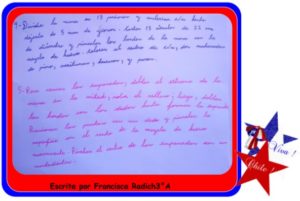 4- Dividir la masa en 15 porciones y
déjela de 3 mm de grosor. Cortar 15 círculos de 22 cm
de diámetro y pincelar los bordes de la masa con la
mezcla de huevo. Colocar al centro de c/u, dos cucharadas
de pino, aceitunas, y pasas.
5- Para cerrar las empanadas, doblar el extremo de la
masa en la mitad, sobre el relleno; luego, doblar
los bordes con los dedos hasta formar la
Presionar las puntas con un dedo y pincelar la
superficie con el resto de la mezcla de huevo
Pinchar el centro de las empanadas con un
mondadientes.
Escrito por Francisca Radich3°A
Viva!
Chile!